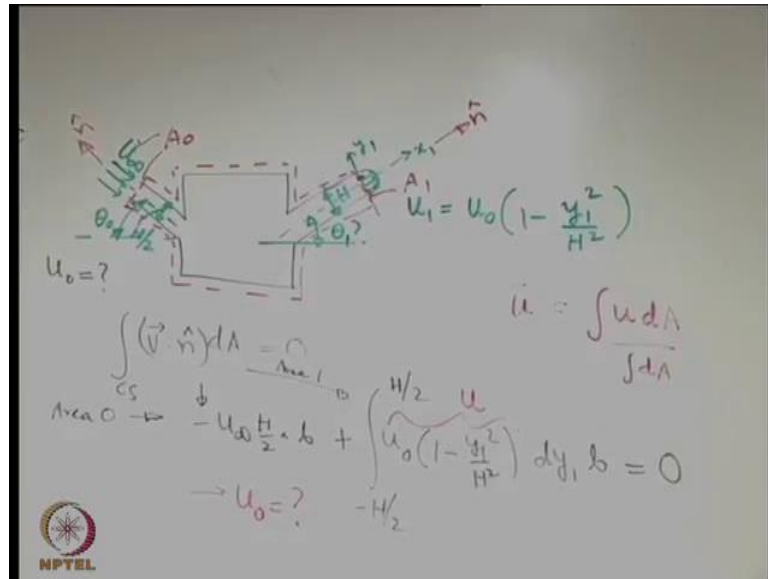 n̂
A₀
U∞
θ₀
H/2
y₁
x₁
n̂
H
A₁
θ₁?
u₁ = u₀(1 - y₁²/H²)
u₀ = ?
∫_CS (V⃗·n̂) dA = 0
ū = ∫u dA / ∫dA
Area 1
Area 0 → -U∞ H/2 · b + ∫_{-H/2}^{H/2} u₀(1 - y₁²/H²) dy₁ b = 0
u
→ u₀ = ?
NPTEL